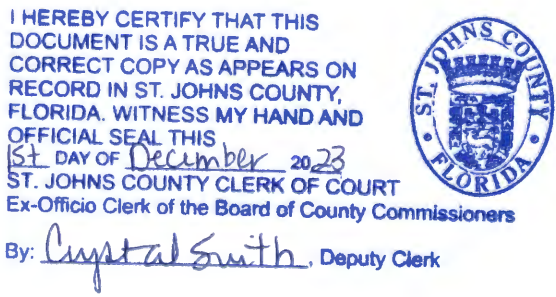 I HEREBY CERTIFY THAT THIS
DOCUMENT IS A TRUE AND
CORRECT COPY AS APPEARS ON
RECORD IN ST. JOHNS COUNTY,
FLORIDA. WITNESS MY HAND AND
OFFICIAL SEAL THIS
1st DAY OF December 2023
ST. JOHNS COUNTY CLERK OF COURT
Ex-Officio Clerk of the Board of County Commissioners
By: Crystal Smith, Deputy Clerk
ST. JOHNS COUNTY
FLORIDA